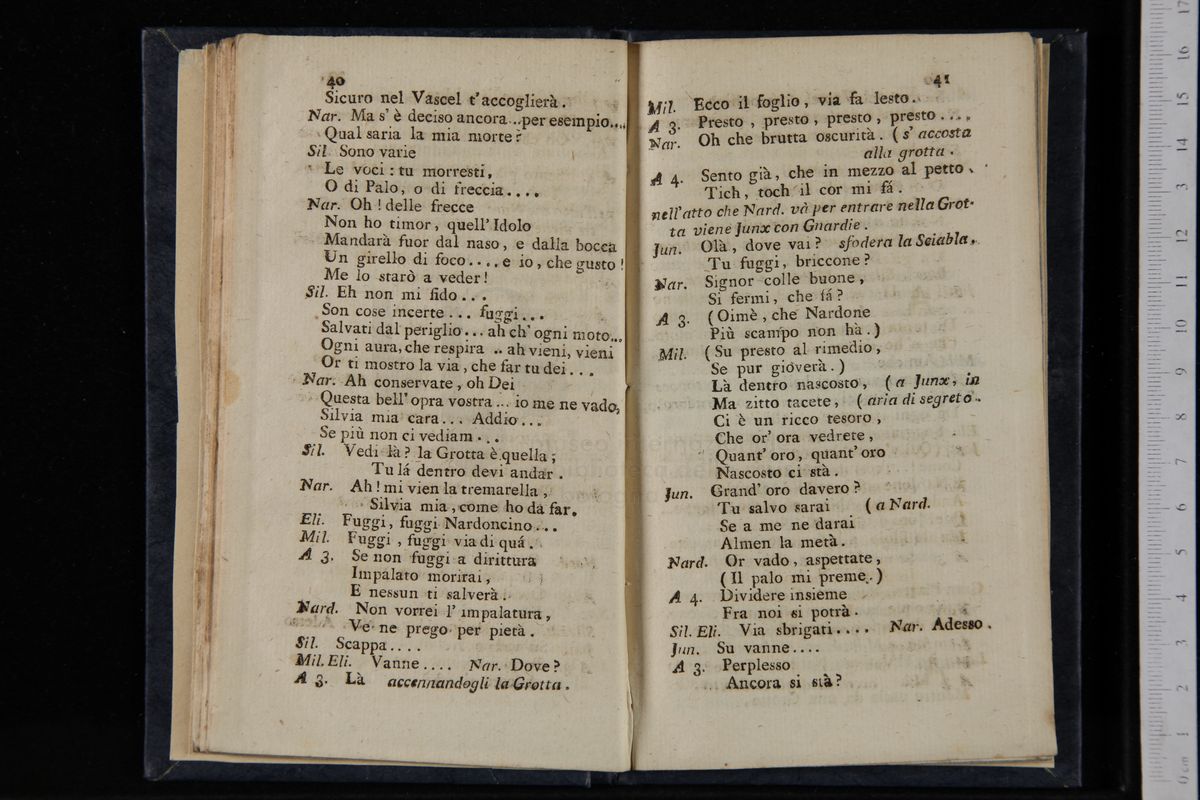 40
Sicuro nel Vascel t'accoglierà.
Nar. Ma s' è deciso ancora...per esempio....
Qual saria la mia morte?
Sil. Sono varie
Le voci : tu morresti,
O di Palo, o di freccia....
Nar. Oh! delle frecce
Non ho timor, quell' Idolo
Mandarà fuor dal naso, e dalla bocca
Un girello di foco.... e io, che gusto!
Me lo starò a veder!
Sil. Eh non mi fido...
Son cose incerte... fuggi...
Salvati dal periglio... ah ch' ogni moto...
Ogni aura, che respira .. ah vieni, vieni
Or ti mostro la via, che far tu dei...
Nar. Ah conservate, oh Dei
Questa bell' opra vostra... io me ne vado,
Silvia mia cara... Addio...
Se più non ci vediam...
Sil. Vedi là? la Grotta è quella;
Tu lá dentro devi andar.
Nar. Ah! mi vien la tremarella,
Silvia mia, come ho da far.
Eli. Fuggi, fuggi Nardoncino...
Mil. Fuggi, fuggi via di quá.
A 3. Se non fuggi a dirittura
Impalato morirai,
E nessun ti salverà.
Nard. Non vorrei l' impalatura,
Ve ne prego per pietà.
Sil. Scappa....
Mil. Eli. Vanne.... Nar. Dove?
A 3. Là accennandogli la Grotta.
41
Mil. Ecco il foglio, via fa lesto.
A 3. Presto, presto, presto, presto....
Nar. Oh che brutta oscurità. (s' accosta
alla grotta.
A 4. Sento già, che in mezzo al petto
Tich, toch il cor mi fá.
nell'atto che Nard. và per entrare nella Grot-
ta viene Junx con Gnardie.
Jun. Olà, dove vai? sfodera la Sciabla,
Tu fuggi, briccone?
Nar. Signor colle buone,
Si fermi, che fá?
A 3. (Oimè, che Nardone
Più scampo non hà.)
Mil. (Su presto al rimedio,
Se pur gioverà.)
Là dentro nascosto, (a Junx, in
Ma zitto tacete, (aria di segreto.
Ci è un ricco tesoro,
Che or' ora vedrete,
Quant' oro, quant' oro
Nascosto ci stà.
Jun. Grand' oro davero?
Tu salvo sarai (a Nard.
Se a me ne darai
Almen la metà.
Nard. Or vado, aspettate,
(Il palo mi preme.)
A 4. Dividere insieme
Fra noi si potrà.
Sil. Eli. Via sbrigati.... Nar. Adesso.
Jun. Su vanne....
A 3. Perplesso
Ancora si stà?